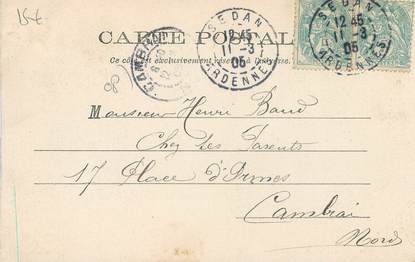 15t
SEDAN
12 45
11 -3
05
ARDENNES
SEDAN
12 45
11 -3
05
ARDENNES
CARTE POSTALE
Ce côté est exclusivement réservé à l'adresse.
CAMBRAI
Monsieur Henri Baud
Chez Ses Parents
17 Place d'Armes
Cambrai
Nord